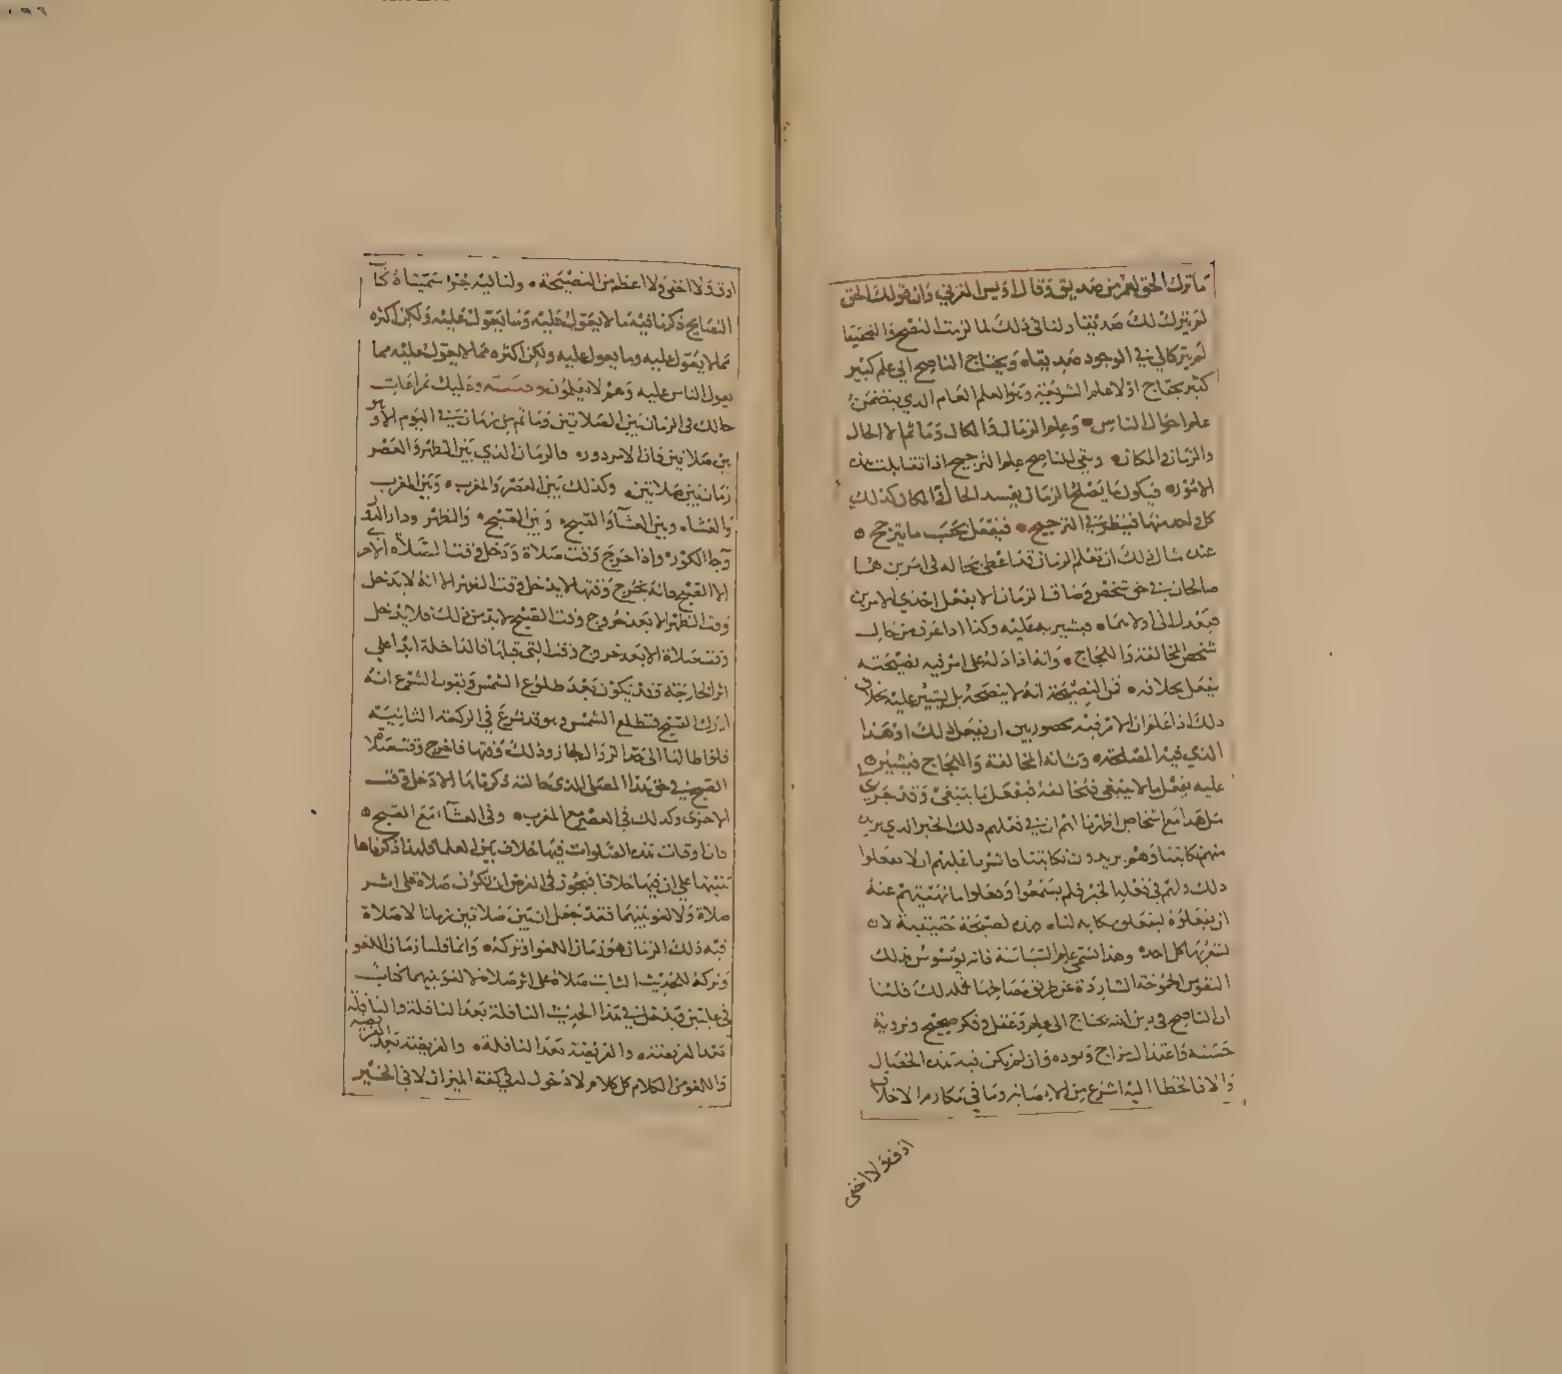 ما ترك الحق لعمر من صديق وقال اويس القرني وان قولك الحق
لم يترك لك صديقا ولنا في ذلك لما لزمت النصح والتحقيقا
لم يتركا لي في الوجود صديقا ويحتاج الناصح الى علم كثير
كثير يحتاج اولا علم الشريعة وهو العلم العام الذي يتضمن
علم احوال الناس وعلم الزمان والمكان وما ثم الا الحال
والزمان والمكان وبقي للناصح علم الترجيح اذا تقابلت هذه
الامور فيكون ما يصلح الزمان يفسد الحال والمكان كذلك
كل واحد منها فينظر في الترجيح فيفعل بحسب ما يترجح
عنده مثال ذلك ان تعلم الزمان قد اعطى بحاله في امرين هما
صالحان في حق شخص وضاق الزمان الا بفعل احدى الامرين
فيعدل الى اولاهما فيشير به عليه وكذا اذا عرف من حال
شخص المخالفة واللجاج وانه اذا دله على امر فيه نصيحته
يفعل بخلافه فمن النصيحة انه لا ينصحه بل يشير عليه بخلاف
ذلك اذا علم ان الامر فيه محصور بين ان يفعل ذلك او هذا
الذي فيه المصلحة وشانه المخالفة واللجاج فيشير
عليه بفعل ما لا ينبغي فيخالفه فيفعل ما ينبغي وقد جرى
مثل هذا مع اشخاص اظهرنا لهم ان في فعلهم ذلك الخير الذي يريد
منهم نكايتنا وهم يريدون نكايتنا فاشرنا عليهم ان لا يفعلوا
ذلك ولهم في فعله الخير فلم يسمعوا وفعلوا ما نهيتهم عنه
ان يفعلوه ليفعلوه نكاية لنا فهذه نصيحة خفية لا
يشعر بها كل احد وهذا يسمى علم السياسة فانه يسوس بذلك
النفوس الجموحة الشاردة عن طريق مصالحها فلذلك قلنا
ان الناصح في دين الله يحتاج الى علم وعقل وفكر صحيح وروية
حسنة واعتدال مزاج وتودة وان لم يكن فيه هذه الخصال
والا فالخطا اليه اسرع من الاصابة وما في مكارم الاخلاق
ادق ولا اخفى
ادق ولا اخفى ولا اعظم من النصيحة ولنا فيه جزء سميناه كتاب
النصايح ذكرنا فيه ما لا يعول عليه وما يعول عليه ولكن اكثره
مما لا يعول عليه وما يعول عليه ولكن اكثره مما لا يعول عليه مما
يعول الناس عليه وهم لا يعلمون وصية وعليك بمراعات
حالك في الزمان بين الصلاتين وما ثم من زمان في اليوم الا وهو
بين صلاتين فان الامر دوره فالزمان الذي بين الظهر والعصر
زمان بين صلاتين وكذلك بين العصر والمغرب وبين المغرب
والعشاء وبين العشاء والصبح وبين الصبح والظهر ودار الدور
وجا الكور واذا خرج وقت صلاة ودخل وقت الصلاة الاخرى
الا الصبح فانه بخروج وقتها لا يدخل وقت الظهر الا انه لا يدخل
وقت الظهر الا بعد خروج وقت الصبح لا بد من ذلك فلا يدخل
وقت صلاة الا بعد خروج وقت التي قبلها فالداخلة ابدا على
اثر الخارجة فقد يكون بعد طلوع الشمس ويقول الشرع انه
ادرك الصبح فتطلع الشمس وهو قد شرع في الركعة الثانية
فلو اطالها الى حد الزوال جاز وذلك وقتها فاخرج وقت صلاة
الصبح في حق هذا المصلى الذي حالته ذكرناها الا دخل وقت
الاخرى وكذلك في العصر مع المغرب وفي العشاء مع الصبح
فان اوقات هذه الصلوات فيها خلاف بين العلماء فلهذا ذكرناها
تنبيها على ان فيها خلافا فيجوز في الفرض ان تكون صلاة على اثر
صلاة ولا لغو بينهما فقد جعل ان بين صلاتين زمانا لا صلاة
فيه ذلك الزمان هو زمان اللغو او تركه وانما قلنا زمان اللغو
وتركه للحديث الثابت صلاة على اثر صلاة لا لغو بينهما كتاب
في عليين ويدخل في هذا الحديث النافلة بعد النافلة والنافلة
بعد الفريضة والفريضة بعد النافلة والفريضة بعد الفريضة
واللغو من الكلام كل كلام لا دخول له في كفة الميزان لا في الخير